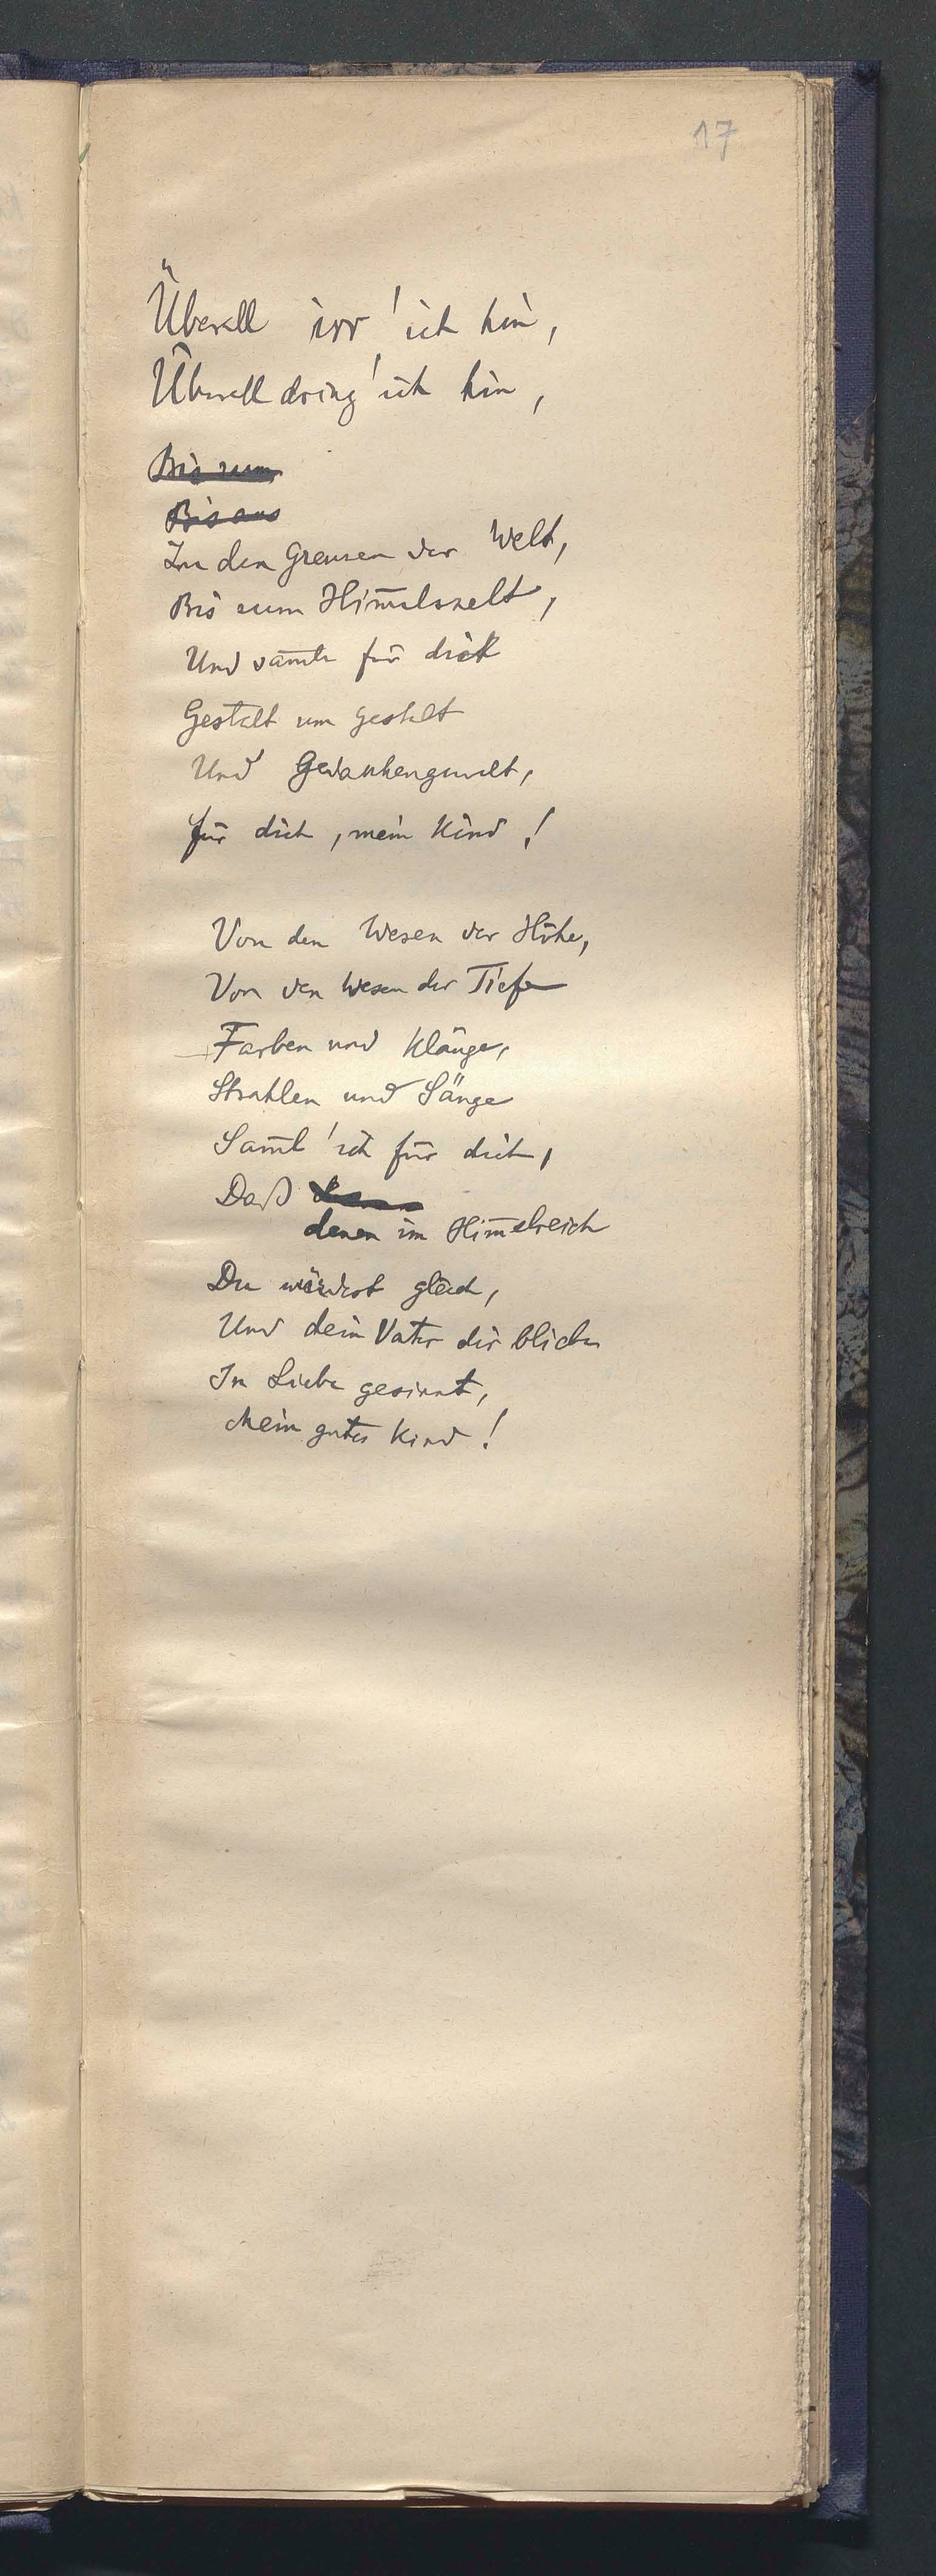 17
Überall irr' ich hin,
Überall dring' ich hin,
Bis zum
Bis ans
Zu den Grenzen der Welt,
Bis zum Him̅elszelt,
Und sam̅le für dich
Gestalt um Gestalt
Und Gedankengewalt,
Für dich, mein Kind!
Von den Wesen der Höhe,
Von den Wesen der Tiefe
Farben und Klänge,
Strahlen und Sänge
Sam̅l' ich für dich,
Daß
denen im Him̅elreich
Du würdest gleich,
Und dein Vater dir bliebe
In Liebe gesinnt,
Mein gutes Kind!